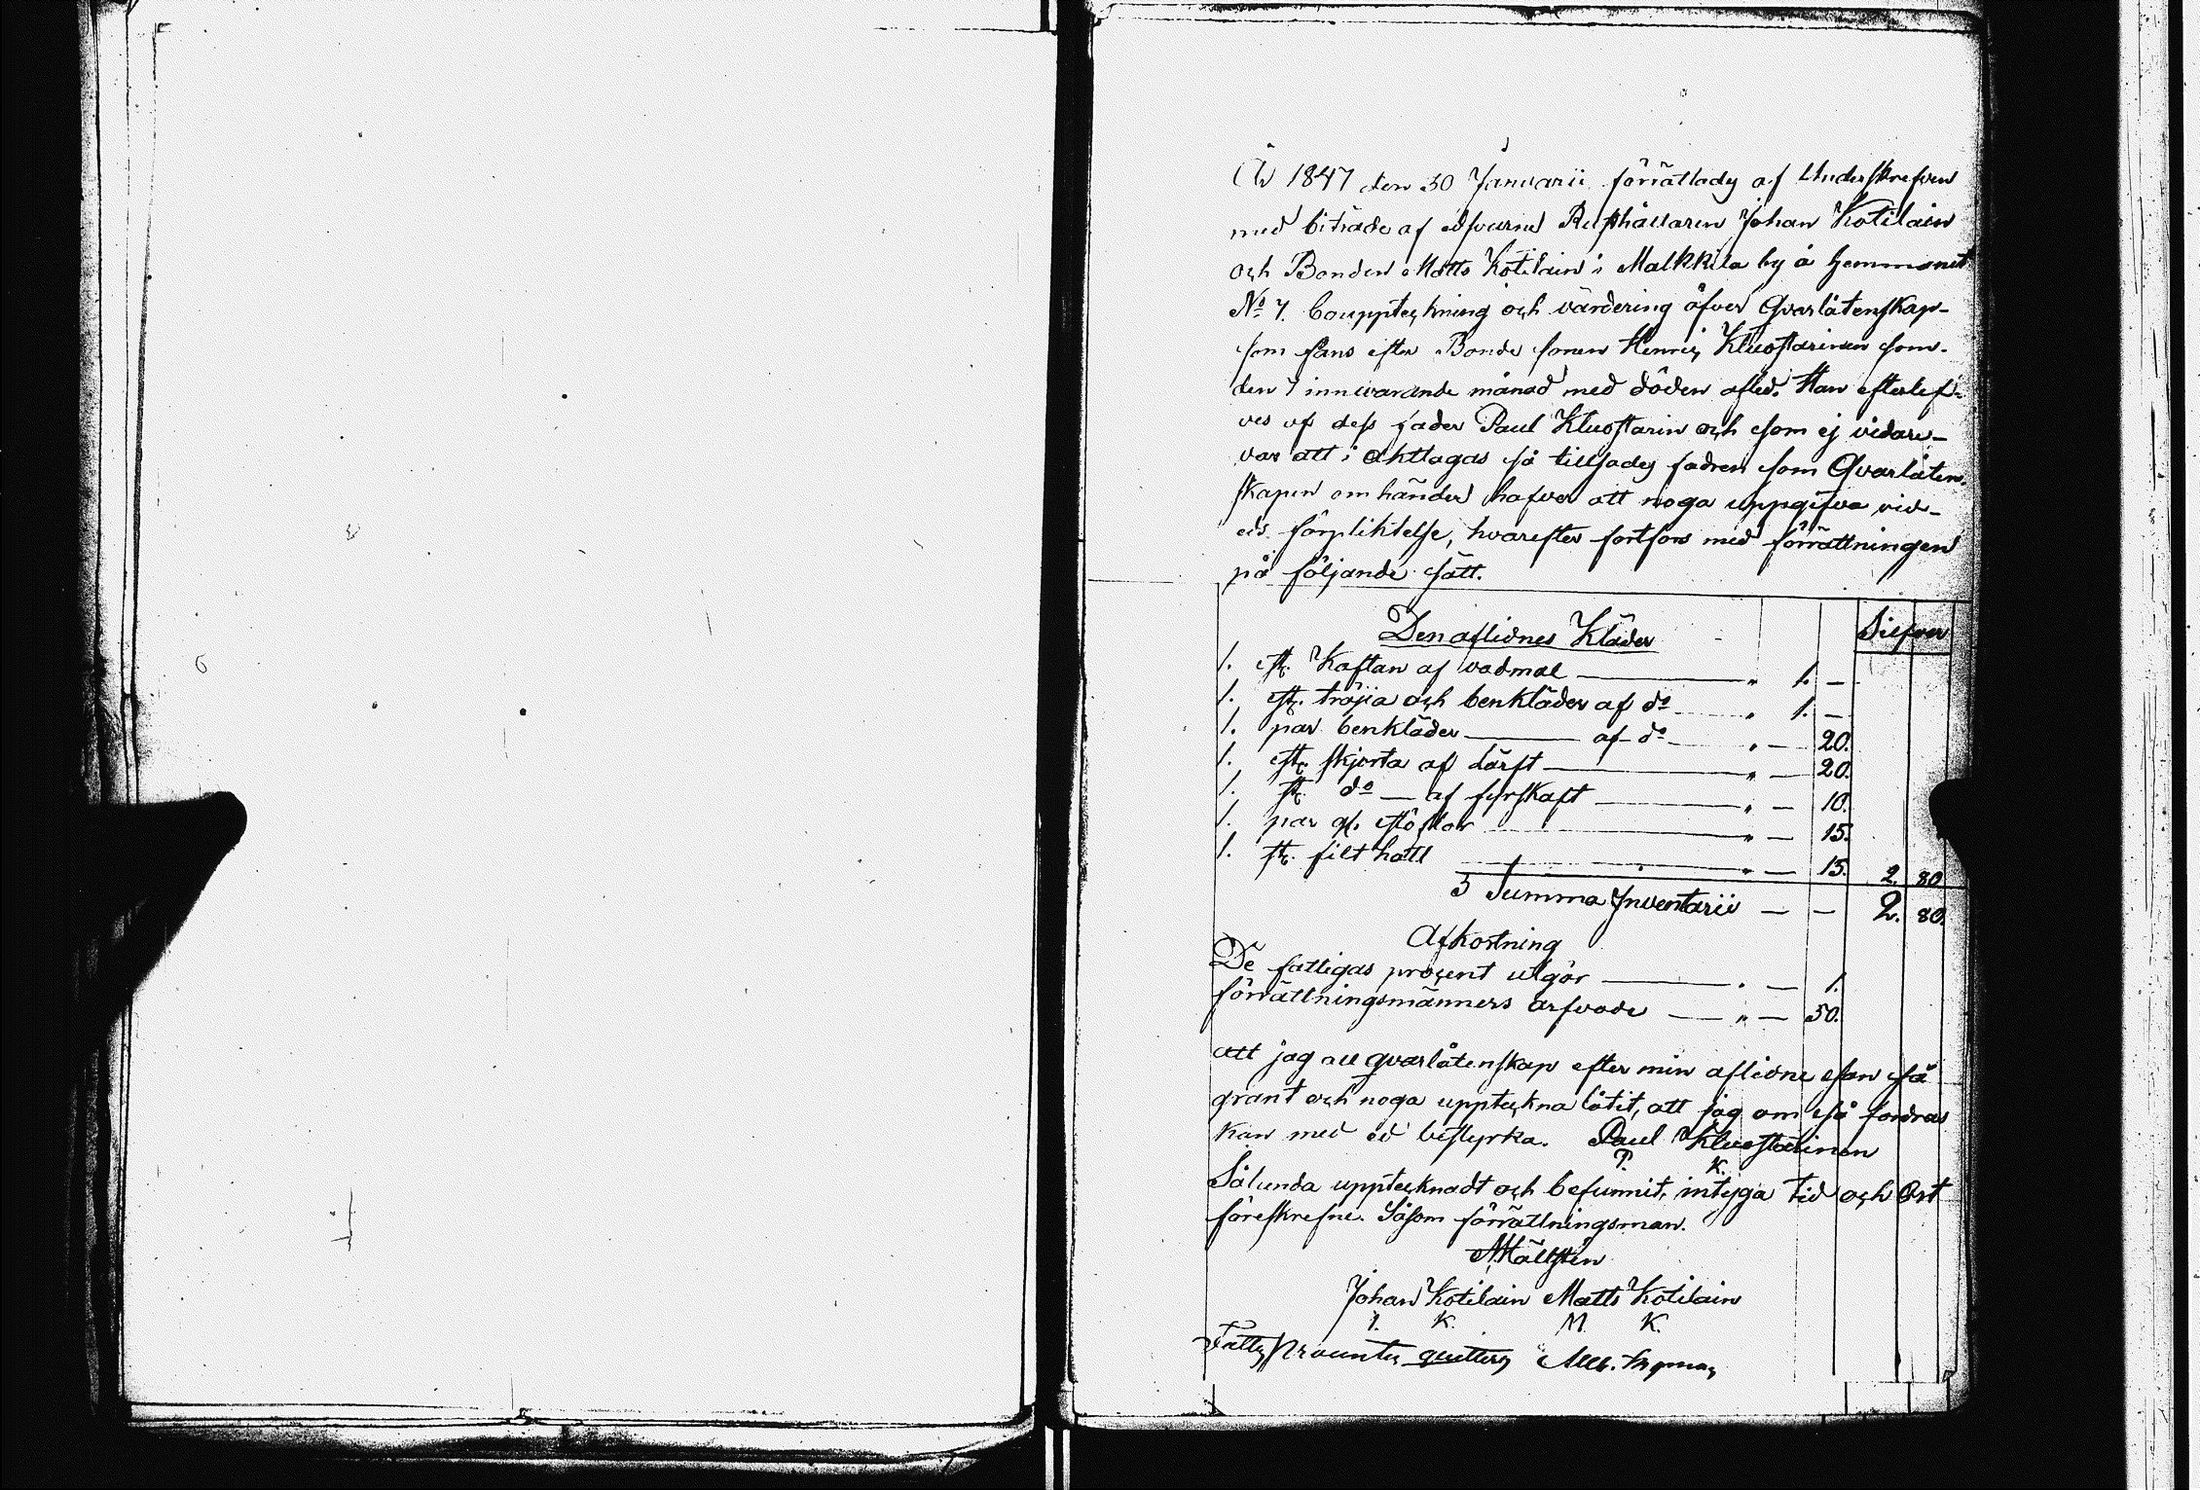 År 1847 den 30 Januarii förrättades af Underskrefven
med biträde af edsvurne Rusthållaren Johan Kotilain
och Bonden Matts Kotilain i Malkkila by å Hemmanet
No 7. Bouppteckning och värdering öfver Qvarlåtenskap
som fans efter Bonde sonen Henric Kluostarinen som
den 7 innevarande månad med döden afled. Han efterlef-
ves af dess fader Paul Kluostarin och som ej vidare
var att i akttagas så tillsades fadren som Qvarlåten
skapen om händer hafver att noga uppgifva vid
eds förpliktelse, hvarefter fortfors med förrättningen
på följande sätt.
Den aflidnes Kläder Silfver
1. st. Kaftan af vadmal — " 1. —
1. st. tröjia och benkläder af do " 1. —
1. par benkläder — af do " — 20.
1. st. skjorta af lärft — " — 20.
1. st. do — af fyrskaft — " — 10.
1. par gl. stöflor " — 15.
1. st. filt hatt " — 15. 2. 80
Summa Inventarii — — 2. 80.
Afkortning
De fattigas procent utgör — " — 1.
förrättningsmänners arfvode — " — 50.
Att jag all qvarlåtenskap efter min aflidne son så
grant och noga uppteckna låtit, att jag om så fordras
kan med ed bestyrka. Paul Kluostarinen
P. K.
Sålunda upptecknadt och befunnit, intyga tid och Ort
föreskrefne. Såsom förrättningsman.
Hällsten
Johan Kotilain Matts Kotilain
J. K. M. K.